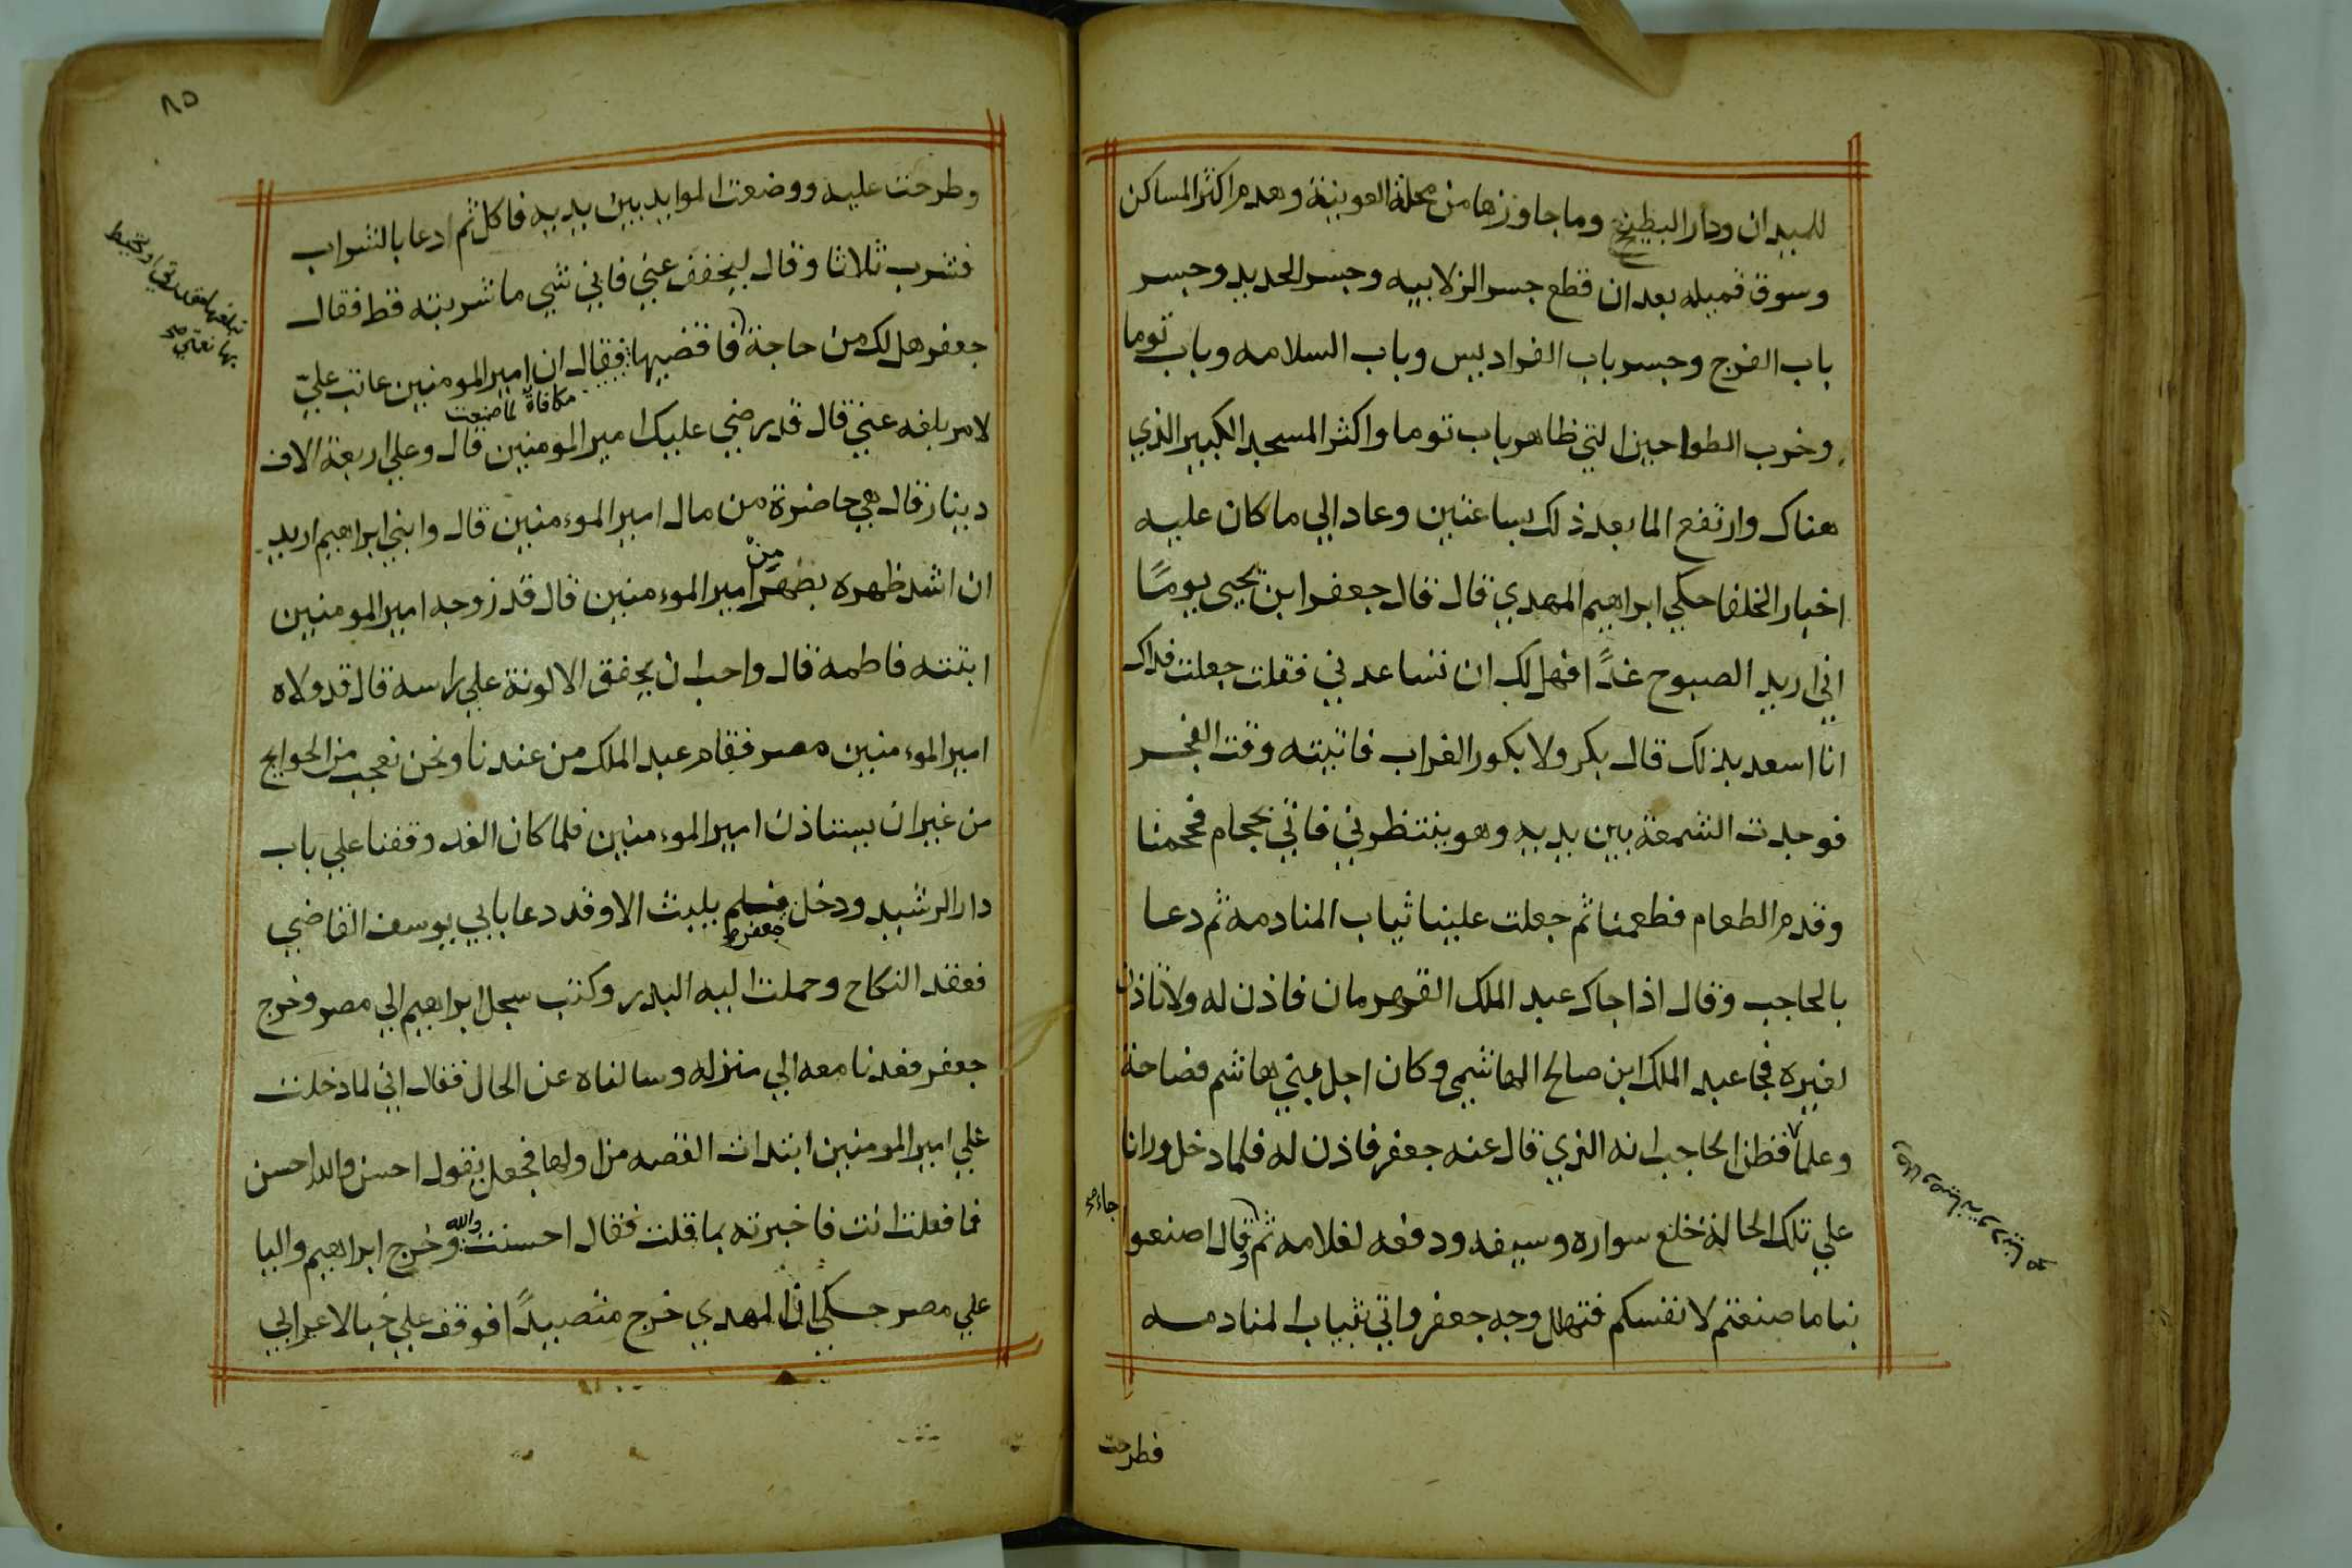 للميدان ودار البطيخ وما جاوزها من محلة العوينة وهدم اكثر المساكن
وسوق قميله بعد ان قطع جسر الزلابيه وجسر الحديد وجسر
باب الفرج وجسر باب الفراديس وباب السلامه وباب توما
وخرب الطواحين التي ظاهر باب توما واكثر المسجد الكبير الذي
هناك وارتفع الما بعد ذلك بساعتين وعاد الي ما كان عليه
اخبار الخلفا حكي ابراهيم المهدي قال قال جعفر ابن يحيى يومًا
اني اريد الصبوح غدًا فهل لك ان تساعدني فقلت جعلت فداك
انا اسعد بذلك قال بكر ولا بكور الغراب فاتيته وقت الفجر
فوجدت الشمعة بين يديه وهو ينتظرني فاتي بحجام فحجمنا
وقدم الطعام فطعمنا ثم جعلت علينا ثياب المنادمه ثم دعا
بالحاجب وقال اذا جاك عبد الملك القهرمان فاذن له ولا تاذن
لغيره فجا عبد الملك ابن صالح الهاشمي وكان اجل بني هاشم فصاحة
وعلما فظن الحاجب انه الذي قال عنه جعفر فاذن له فلما دخل ورانا
علي تلك الحالة خلع سواره وسيفه ودفعه لغلامه ثم قال اصنعوا
جاء صح
بنا ما صنعتم لانفسكم فتهلل وجه جعفر واتي بثياب المنادمه
فطرحت
٨٥
وطرحت عليه ووضعت الموايد بين يديه فاكل ثم ادعا بالشراب
فشرب ثلاثا وقال ليخفف عني فاني شي ما شربته قط فقال
جعفر هل لك من حاجة فاقضيها فقال ان امير المومنين عاتب عليّ
مكافاة لما صنعت
لامر بلغه عني قال قد رضي عليك امير المومنين قال وعلي اربعة الاف
دينار قال هي حاضرة من مال امير الموءمنين قال وابني ابراهيم اريد
ان اشد ظهره بظهر من امير الموءمنين قال قد زوجه امير المومنين
ابنته فاطمه قال واحب ان يخفق الالوية علي راسه قال قد ولاه
امير الموءمنين مصر فقام عبد الملك من عندنا ونحن نعجب من الحوايج
من غير ان يستاذن امير الموءمنين فلما كان الغد وقفنا علي باب
دار الرشيد ودخل جعفر فلم يلبث الا وقد دعا بابي يوسف القاضي
فعقد النكاح وحملت اليه البدر وكتب سجل ابراهيم الي مصر وخرج
جعفر فعدنا معه الي منزله وسالناه عن الحال فقال اني لما دخلت
علي امير المومنين ابتدات القصه من اولها فجعل يقول احسن والله احسن
فما فعلت انت فاخبرته بما قلت فقال احسنت والله وخرج ابراهيم واليا
علي مصر حكي ان المهدي خرج متصيدًا فوقف علي خبا لاعرابي